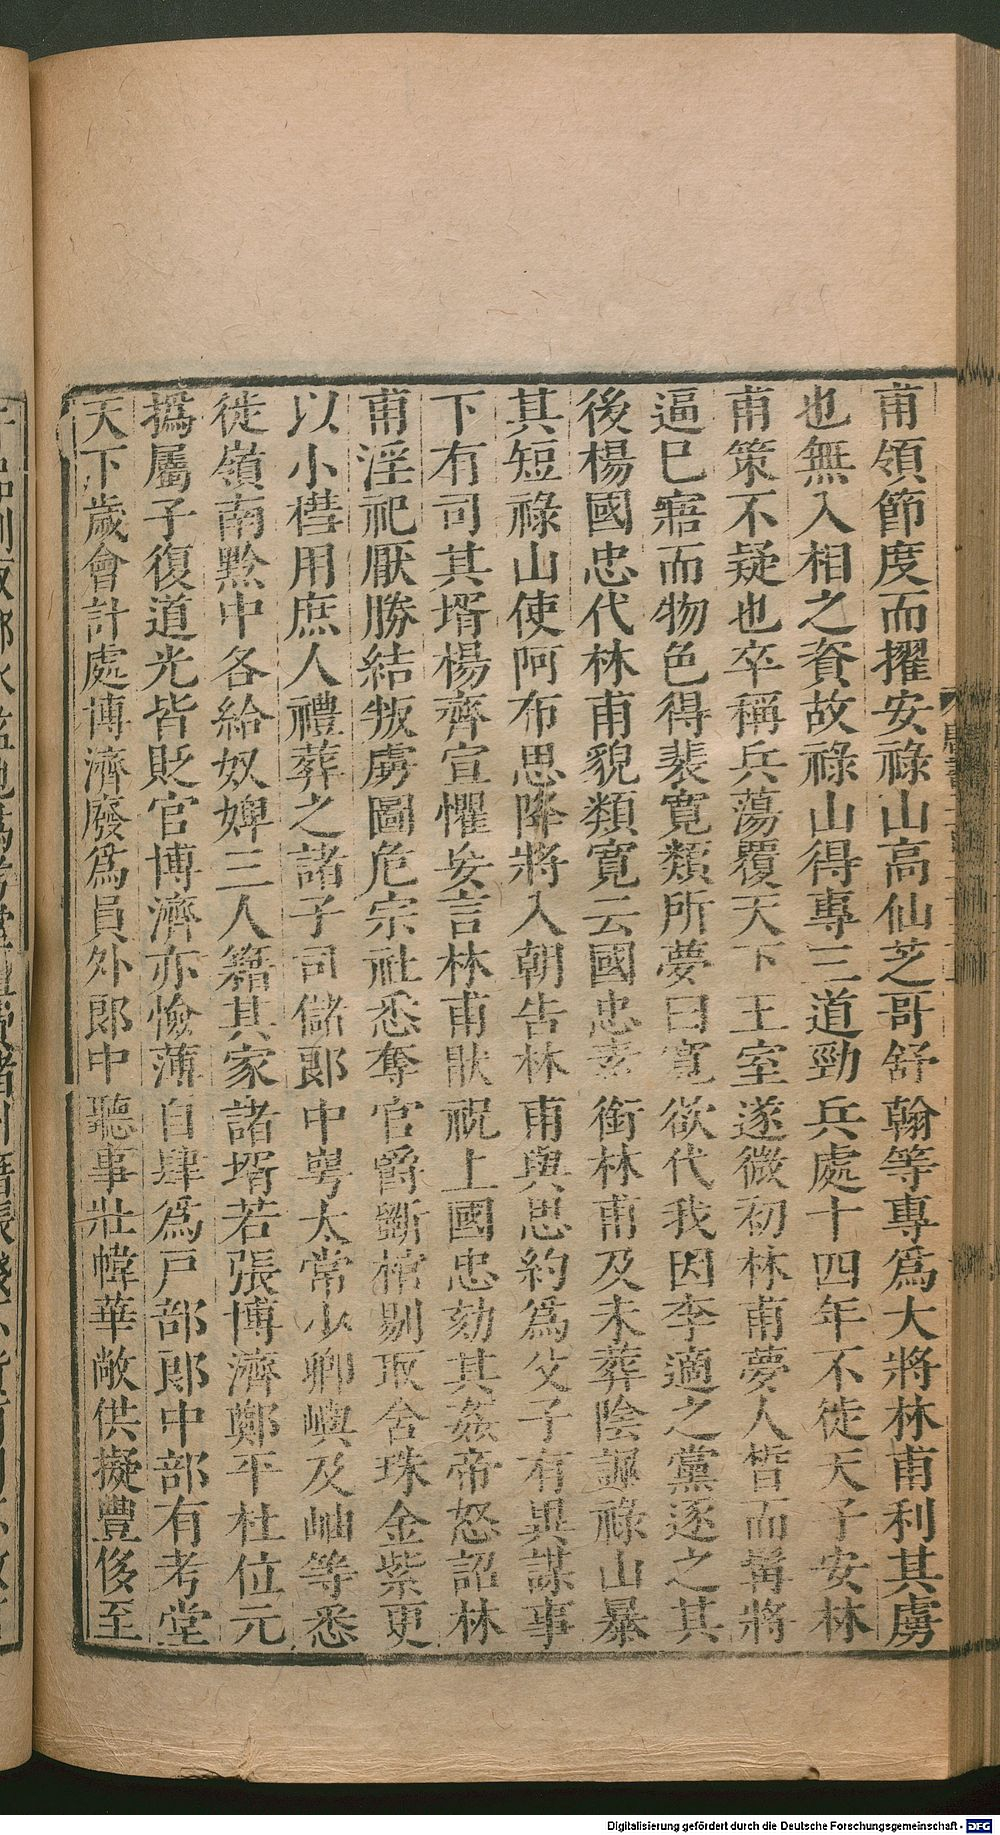 甫領節度而擢安祿山高仙芝哥舒翰等專爲大將林甫利其虜
也無入相之資故祿山得專三道勁兵處十四年不徙天子安林
甫策不疑也卒稱兵蕩覆天下王室遂微初林甫夢人皙而髯將
逼已寤而物色得裴寬類所夢曰寬欲代我因李適之黨逐之其
後楊國忠代林甫貌類寬云國忠素銜林甫及未葬陰諷祿山暴
其短祿山使阿布思降將入朝告林甫與思約爲父子有異謀事
下有司其壻楊齊宣懼妄言林甫猒祝上國忠劾其姦帝怒詔林
甫淫祀厭勝結叛虜圖危宗社悉奪官爵斵棺剔取含珠金紫更
以小槥用庶人禮葬之諸子司儲郎中崿太常少卿嶼及岫等悉
徙嶺南黔中各給奴婢三人籍其家諸壻若張博濟鄭平杜位元
撝屬子復道光皆貶官博濟亦憸薄自肆爲戸部郎中部有考堂
天下歲會計處博濟廢爲員外郎中聽事壯幃華敞供擬豐侈至
Digitalisierung gefördert durch die Deutsche Forschungsgemeinschaft - DFG